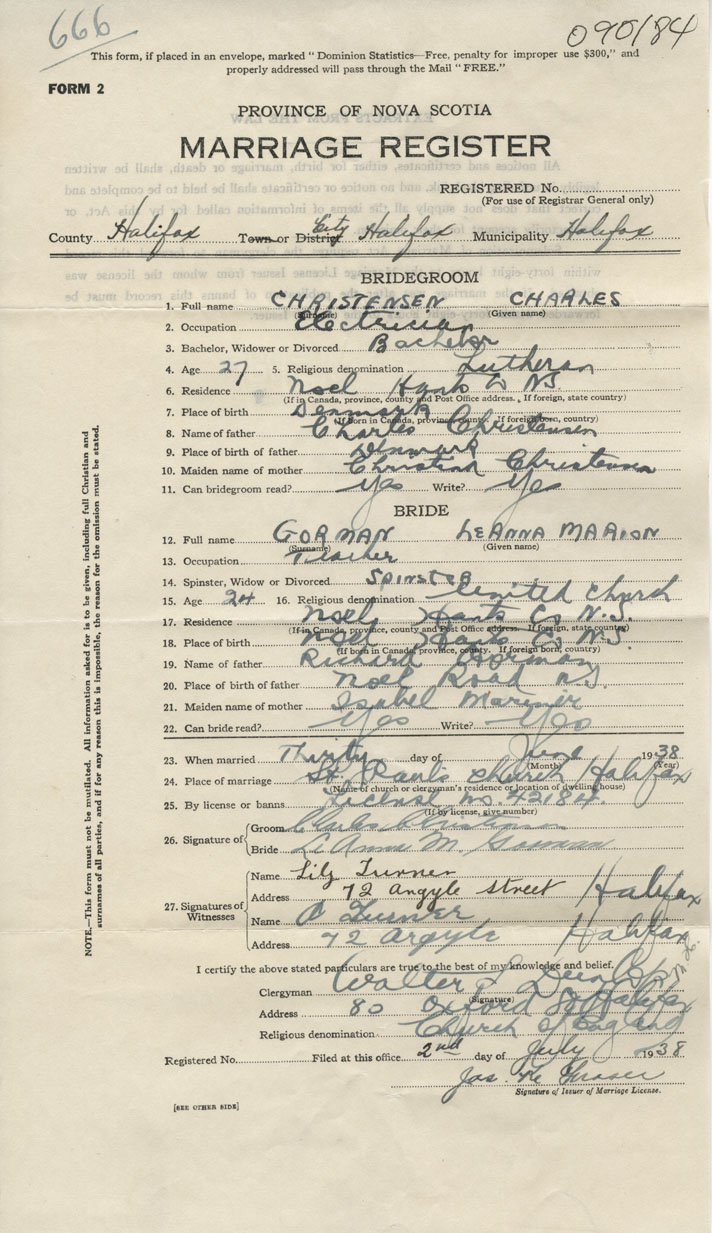 666
090184
This form, if placed in an envelope, marked "Dominion Statistics—Free, penalty for improper use $300," and
properly addressed will pass through the Mail "FREE."
FORM 2
PROVINCE OF NOVA SCOTIA
MARRIAGE REGISTER
REGISTERED No.
(For use of Registrar General only)
City
County Halifax Town or District Halifax Municipality Halifax
BRIDEGROOM
1. Full name CHRISTENSEN CHARLES
(Surname) (Given name)
2. Occupation Electrician
3. Bachelor, Widower or Divorced Bachelor
4. Age 27 5. Religious denomination Lutheran
6. Residence Noel Hants Co NS.
(If in Canada, province, county and Post Office address. If foreign, state country)
7. Place of birth Denmark
(If born in Canada, province, county. If foreign born, country)
8. Name of father Charles Christensen
9. Place of birth of father Denmark
10. Maiden name of mother Christina Christensen
11. Can bridegroom read? Yes Write? Yes
BRIDE
12. Full name GORMAN LEANNA MARION
(Surname) (Given name)
13. Occupation Teacher
14. Spinster, Widow or Divorced SPINSTER
15. Age 24 16. Religious denomination United Church
17. Residence Noel Hants Co N.S.
(If in Canada, province, county and Post Office address. If foreign, state country)
18. Place of birth Noel Hants Co N.S.
(If born in Canada, province, county. If foreign born, country)
19. Name of father Richard Gorman
20. Place of birth of father Noel Road N.S.
21. Maiden name of mother Isabel
22. Can bride read? Yes Write? Yes
23. When married Thirty day of June 1938
(Month) (Year)
24. Place of marriage St. Paul's Church Halifax
(Name of church or clergyman's residence or location of dwelling house)
25. By license or banns License no. 42184.
(If by license, give number)
26. Signature of
Groom Charles Christensen
Bride LeAnna M. Gorman
27. Signatures of Witnesses
Name Lily Turner
Address 72 Argyle street Halifax
Name Turner
Address 72 Argyle Halifax
I certify the above stated particulars are true to the best of my knowledge and belief.
Clergyman Walter
(Signature)
Address 80 Oxford St Halifax
Religious denomination Church of England
Registered No. Filed at this office 2nd day of July 1938
Jas.
Signature of Issuer of Marriage License.
[SEE OTHER SIDE]
NOTE.—This form must not be mutilated. All information asked for is to be given, including full Christian and
surnames of all parties, and if for any reason this is impossible, the reason for the omission must be stated.